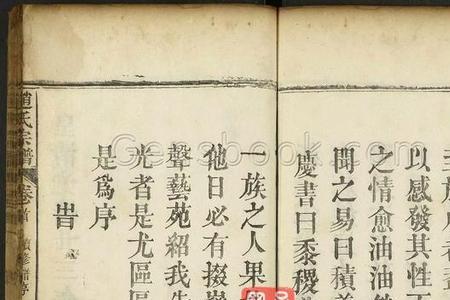 至於
以感發其性
之情愈油油
問之易曰積善
慶書曰黍稷
一族之人果
他日必有掇
聲藝苑紹我
光者是尤區區
是為序
旹
趙氏宗譜 卷首 續修譜序
Genebook.com